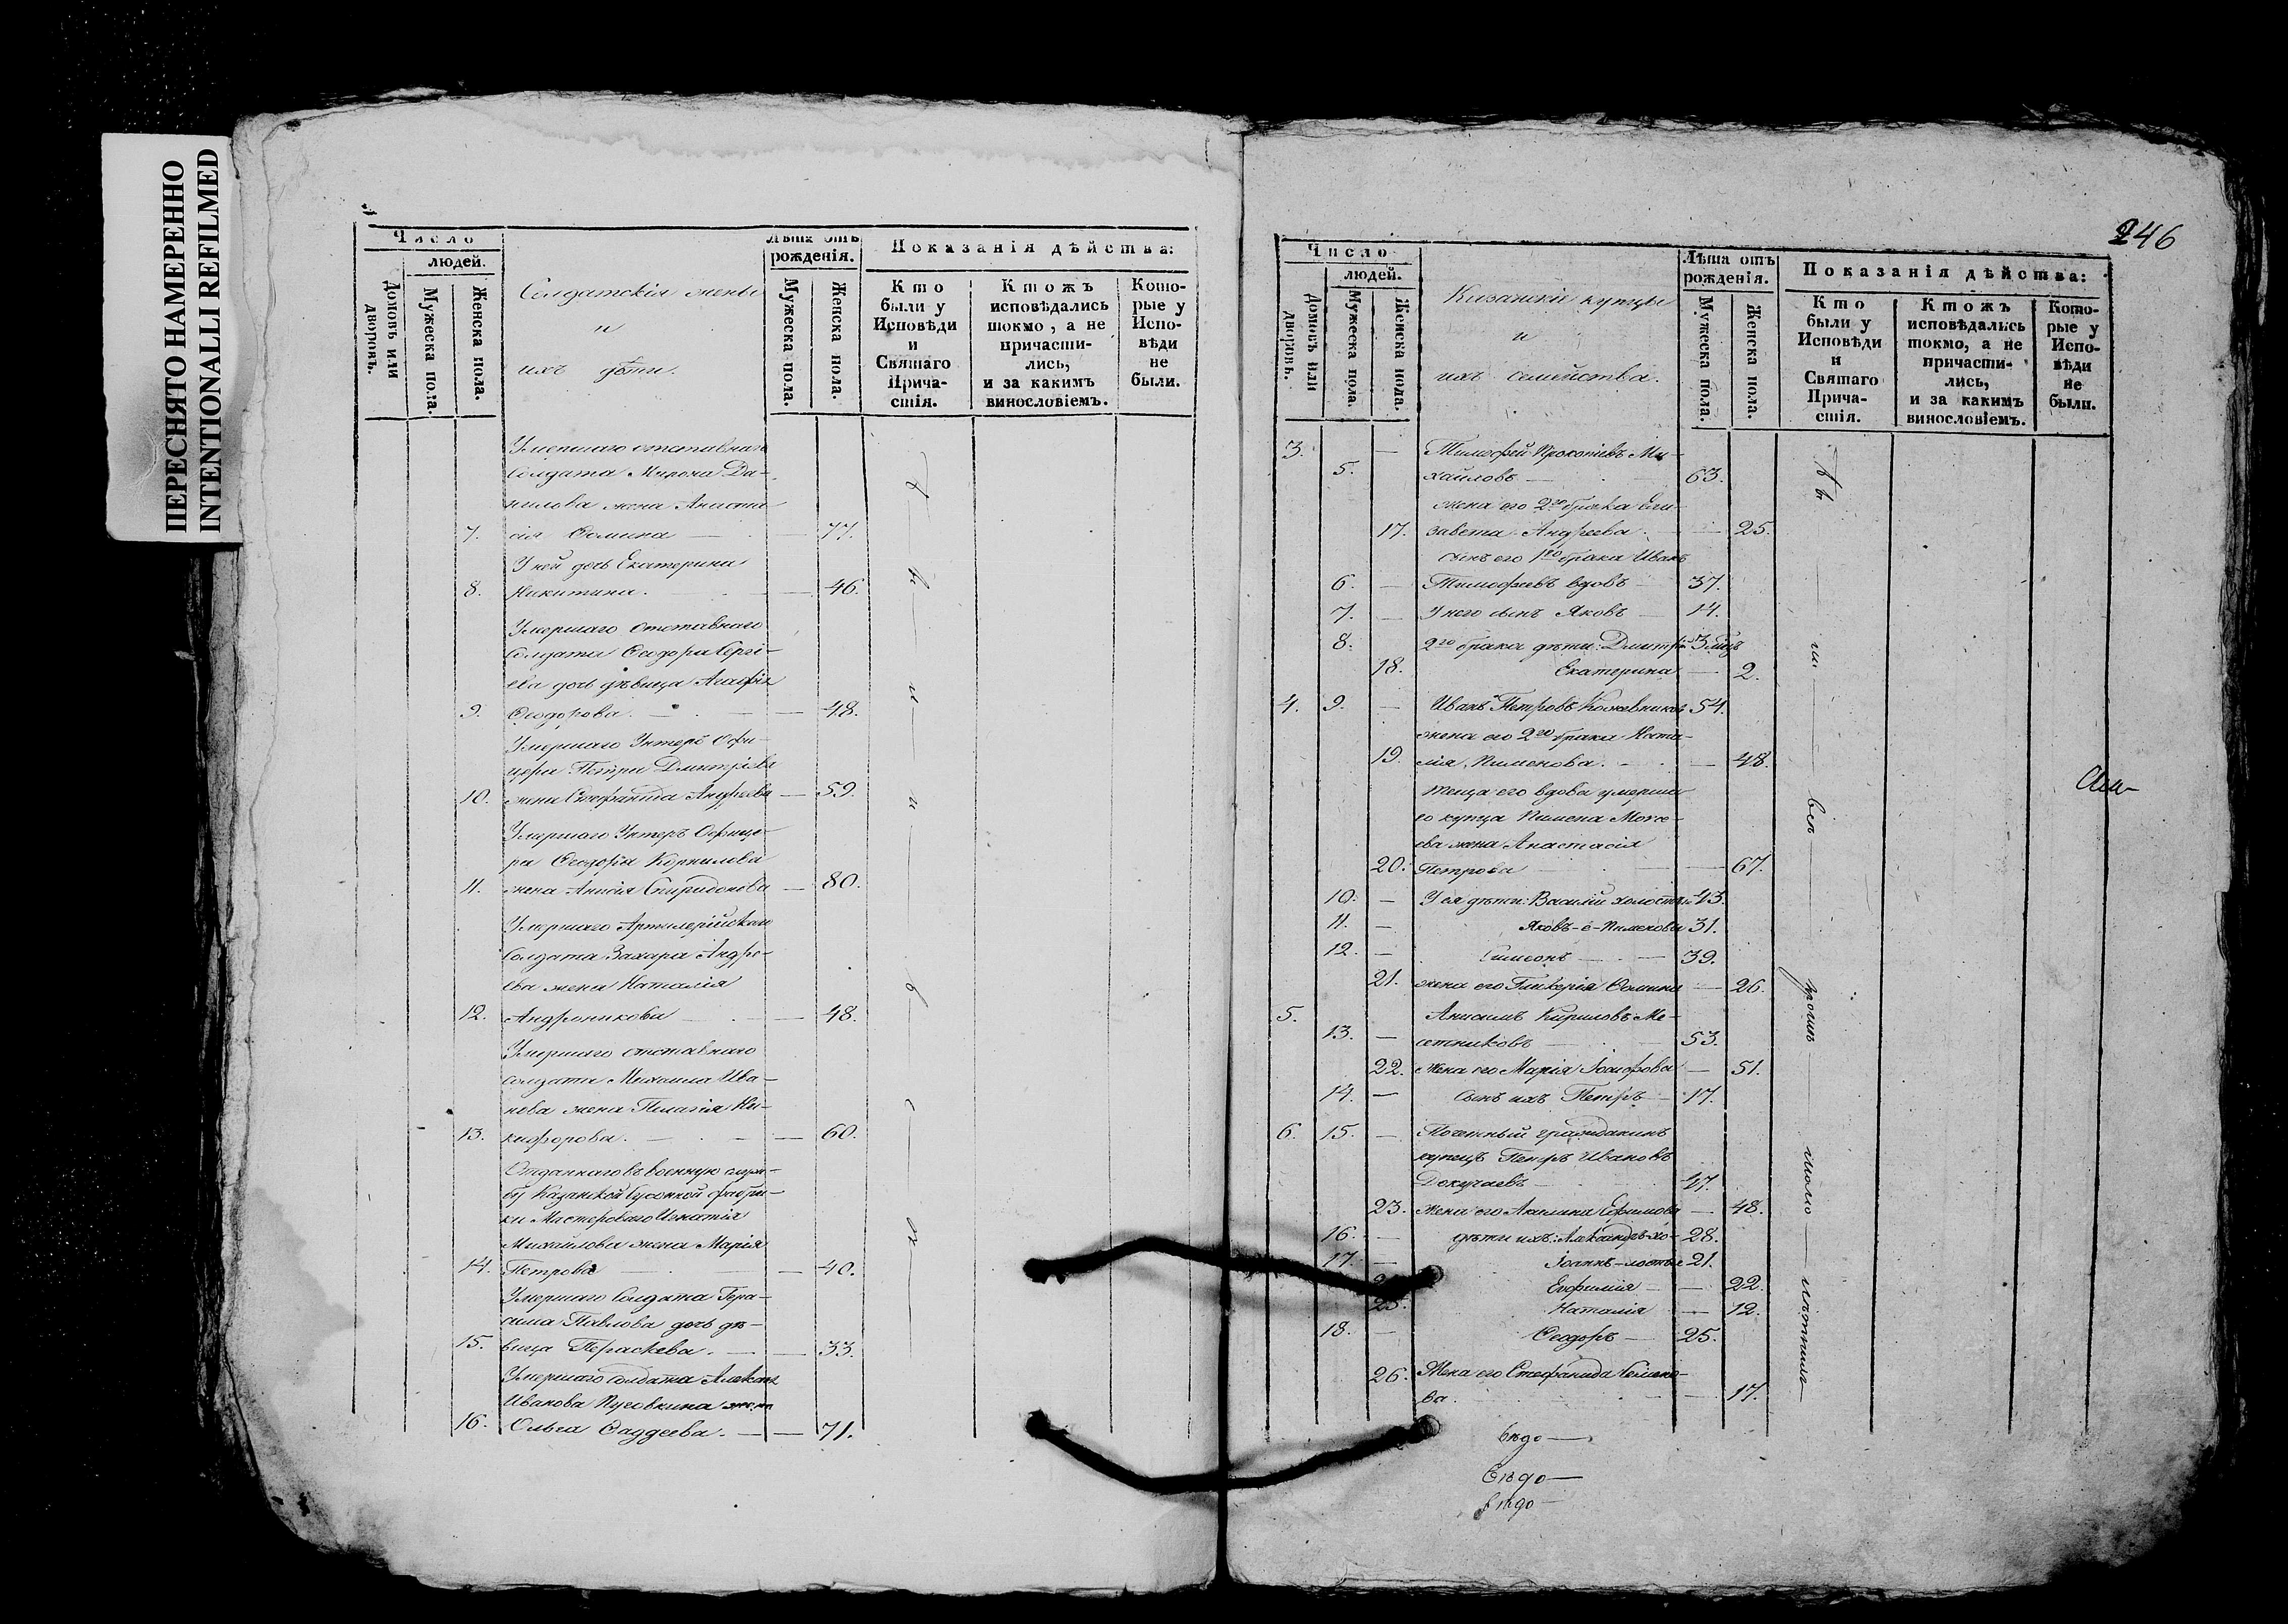 ПЕРЕСНЯТО НАМЕРЕННО
INTENTIONALLI REFILMED
Число
людей.
Домовъ или дворовъ.
Мужеска пола.
Женска пола.
Солдатскія жены
и
ихъ дѣти.
Лѣта отъ
рожденія.
Мужеска пола.
Женска пола.
Показанія дѣйства:
Кто
были у
Исповѣди
и
Святаго
Прича-
стія.
Ктожъ
исповѣдались
токмо, а не
причасти-
лись,
и за какимъ
винословіемъ.
Кото-
рые у
Испо-
вѣди
не
были.
Умершаго отставнаго
Солдата Мирона Да-
нилова жена Анаста-
7. сія Ѳомина — 77.
У ней дочь Екатерина
8. Никитина. — 46.
Умершаго отставнаго
Солдата Ѳеодора Сергі-
ева дочь дѣвица Агафія
9. Ѳеодорова. — 48.
Умершаго Унтеръ Офи-
цера Петра Дмитріева
10. жена Стефанида Андреева — 59.
Умершаго Унтеръ Офице-
ра Ѳеодора Корнилова
11. жена Анисія Спиридонова — 80.
Умершаго Артилерійскаго
Солдата Захара Андре-
ева жена Наталія
12. Андроникова — 48.
Умершаго отставнаго
солдата Михаила Ива-
нова жена Пелагія Ни-
13. кифорова. — 60.
Отданнаго въ военную служ-
бу Казанской Суконной фабри-
ки Мастероваго Игнатія
Михайлова жена Марія
14. Петрова — 40.
Умершаго Солдата Гера-
сима Павлова дочь дѣ-
15. вица Параскева. — 33.
Умершаго солдата
Иванова Пуговкина жена
16. Ольга Фаддеева. — 71.
246
Число
людей.
Домовъ или дворовъ.
Мужеска пола.
Женска пола.
Казанскіе купцы
и
ихъ семейства.
Лѣта отъ
рожденія.
Мужеска пола.
Женска пола.
Показанія дѣйства:
Кто
были у
Исповѣди
и
Святаго
Прича-
стія.
Ктожъ
исповѣдались
токмо, а не
причасти-
лись,
и за какимъ
винословіемъ.
Кото-
рые у
Испо-
вѣди
не
были.
3. — Тимофей Прокопіевъ Ми-
5. хайловъ — 63.
жена его 2го брака Ели-
17. завета Андреева. — 25.
сынъ его 1го брака Иванъ
6. — Тимофеевъ вдовъ — 37.
7. — У него сынъ Яковъ — 14.
8. 2го брака дѣти: Дмитрій 3 мѣс
18. Екатерина — 2.
4. 9. — Иванъ Петровъ Кожевниковъ 54.
жена его 2го брака Ната-
19. лія Пименова. — 48.
теща его вдова умерша-
го купца Пимена Моисе-
ева жена Анастасія
20. Петрова — 67.
10. — У ея дѣти: Василій холостъ 43.
11. — Яковъ-е-Пименовы 31.
12. — Симеонъ — 39.
21. жена его Гликерія Ѳомина — 26.
5. Анисимъ Кириловъ Ме-
13. — сетниковъ 53.
22. Жена его Марія Іосифова — 51.
14. — Сынъ ихъ Петръ — 17.
6. 15. — Почетный гражданинъ
купецъ Петръ Ивановъ
Докучаевъ — 47.
23. Жена его Акилина Ефимова — 48.
16. — дѣти ихъ: Александръ-хо- 28.
17. — Іоаннъ-лосты 21.
Евфимія — 22.
25. Наталія — 12.
18. — Ѳеодоръ — 25.
26. Жена его Стефанида Семено-
ва. — 17.